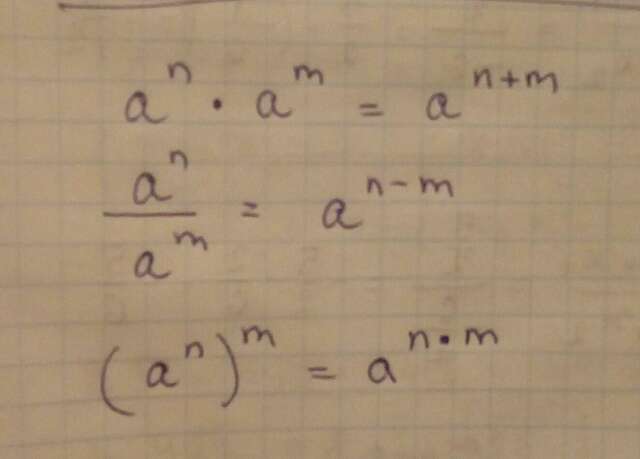 aⁿ · aᵐ = aⁿ⁺ᵐ
aⁿ/aᵐ = aⁿ⁻ᵐ
(aⁿ)ᵐ = aⁿ·ᵐ